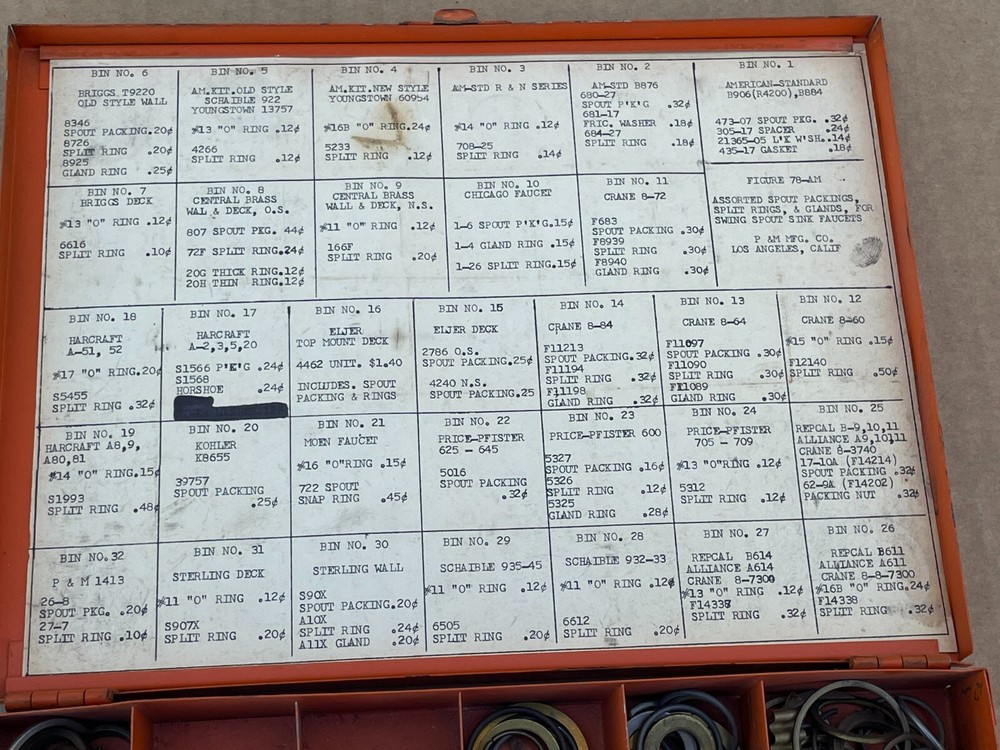 BIN NO. 6
BRIGGS T9220
OLD STYLE WALL
8346
SPOUT PACKING.20¢
8726
SPLIT RING .20¢
8925
GLAND RING .25¢
BIN NO. 5
AM.KIT.OLD STYLE
SCHAIBLE 922
YOUNGSTOWN 13757
#13 "O" RING .12¢
4266
SPLIT RING .12¢
BIN NO. 4
AM.KIT.NEW STYLE
YOUNGSTOWN 60954
#16B "O" RING.24¢
5233
SPLIT RING .12¢
BIN NO. 3
AM-STD R & N SERIES
#14 "O" RING .12¢
708-25
SPLIT RING .14¢
BIN NO. 2
AM-STD B876
680-27
SPOUT P'K'G .32¢
681-17
FRIC. WASHER .18¢
684-27
SPLIT RING .18¢
BIN NO. 1
AMERICAN-STANDARD
B906(R4200),B884
473-07 SPOUT PKG. .32¢
305-17 SPACER .24¢
21365-05 L'K W'SH..14¢
435-17 GASKET .18¢
BIN NO. 7
BRIGGS DECK
#13 "O" RING .12¢
6616
SPLIT RING .10¢
BIN NO. 8
CENTRAL BRASS
WAL & DECK, O.S.
807 SPOUT PKG. 44¢
72F SPLIT RING.24¢
20G THICK RING.12¢
20H THIN RING.12¢
BIN NO. 9
CENTRAL BRASS
WALL & DECK, N.S.
#11 "O" RING .12¢
166F
SPLIT RING .20¢
BIN NO. 10
CHICAGO FAUCET
1-6 SPOUT P'K'G.15¢
1-4 GLAND RING .15¢
1-26 SPLIT RING.15¢
BIN NO. 11
CRANE 8-72
F683
SPOUT PACKING .30¢
F8939
SPLIT RING .30¢
F8940
GLAND RING .30¢
FIGURE 78-AM
ASSORTED SPOUT PACKINGS,
SPLIT RINGS, & GLANDS, FOR
SWING SPOUT SINK FAUCETS
P & M MFG. CO.
LOS ANGELES, CALIF
BIN NO. 18
HARCRAFT
A-51, 52
#17 "O" RING.20¢
S5455
SPLIT RING .32¢
BIN NO. 17
HARCRAFT
A-2,3,5,20
S1566 P'K'G .24¢
S1568
HORSHOE .24¢
BIN NO. 16
ELJER
TOP MOUNT DECK
4462 UNIT. $1.40
INCLUDES. SPOUT
PACKING & RINGS
BIN NO. 15
ELJER DECK
2786 O.S.
SPOUT PACKING.25¢
4240 N.S.
SPOUT PACKING.25
BIN NO. 14
CRANE 8-84
F11213
SPOUT PACKING.32¢
F11194
SPLIT RING .32¢
F11198
GLAND RING .32¢
BIN NO. 13
CRANE 8-64
F11097
SPOUT PACKING .30¢
F11090
SPLIT RING .30¢
F11089
GLAND RING .30¢
BIN NO. 12
CRANE 8-60
#15 "O" RING .15¢
F12140
SPLIT RING .50¢
BIN NO. 19
HARCRAFT A8,9,
A80,81
#14 "O" RING.15¢
S1993
SPLIT RING .48¢
BIN NO. 20
KOHLER
K8655
39757
SPOUT PACKING
.25¢
BIN NO. 21
MOEN FAUCET
#16 "O"RING .15¢
722 SPOUT
SNAP RING .45¢
BIN NO. 22
PRICE-PFISTER
625 - 645
5016
SPOUT PACKING
.32¢
BIN NO. 23
PRICE-PFISTER 600
5327
SPOUT PACKING .16¢
5326
SPLIT RING .12¢
5325
GLAND RING .28¢
BIN NO. 24
PRICE-PFISTER
705 - 709
#13 "O"RING .12¢
5312
SPLIT RING .12¢
BIN NO. 25
REPCAL B-9,10,11
ALLIANCE A9,10,11
CRANE 8-3740
17-10A (F14214)
SPOUT PACKING .32¢
62-9A (F14202)
PACKING NUT .32¢
BIN NO.32
P & M 1413
26-8
SPOUT PKG. .20¢
27-7
SPLIT RING .10¢
BIN NO. 31
STERLING DECK
#11 "O" RING .12¢
S907X
SPLIT RING .20¢
BIN NO. 30
STERLING WALL
S90X
SPOUT PACKING.20¢
A10X
SPLIT RING .24¢
A11X GLAND .20¢
BIN NO. 29
SCHAIBLE 935-45
#11 "O" RING .12¢
6505
SPLIT RING .20¢
BIN NO. 28
SCHAIBLE 932-33
#11 "O" RING .12¢
6612
SPLIT RING .20¢
BIN NO. 27
REPCAL B614
ALLIANCE A614
CRANE 8-7300
#13 "O" RING .12¢
F14337
SPLIT RING .32¢
BIN NO. 26
REPCAL B611
ALLIANCE A611
CRANE 8-8-7300
#16B "O" RING.24¢
F14338
SPLIT RING .32¢